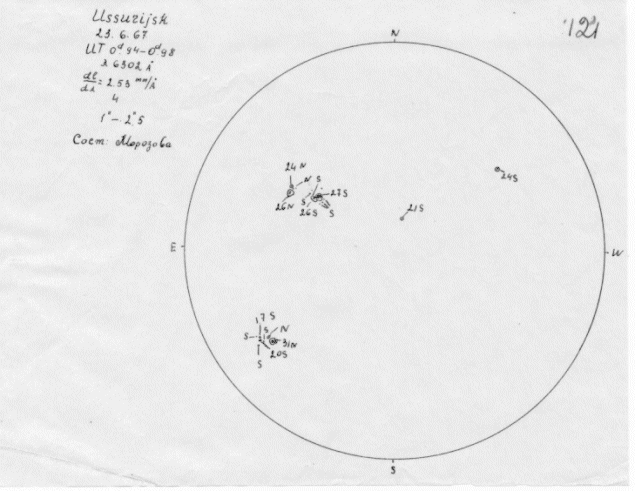 Ussurijsk
23. 6. 67
UT 0ᵈ94-0ᵈ98
λ 6302 Å
dl/dλ = 2.53 mm/Å
4
1" - 2".5
Сост: Морозова
121
N
24 N
N
S
27 S
26 N
S
26 S
S
24 S
21 S
E
W
17 S
S
S
N
31 N
20 S
S
S